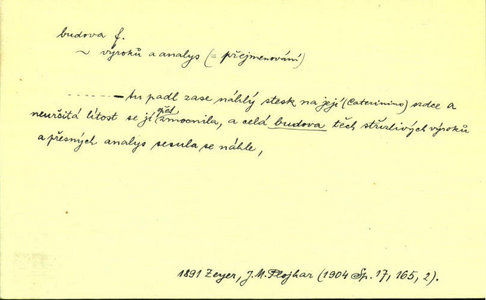 budova f.
~ výroků a analys (= přejmenování)
------- — tu padl zase náhlý stesk na její (Caterinino) srdce a
neurčitá lítost se jí opět zmocnila, a celá budova těch střízlivých výroků
a přesných analys sesula se náhle,
1891 Zeyer, J. M. Plojhar (1904 Sp. 17, 165, 2).